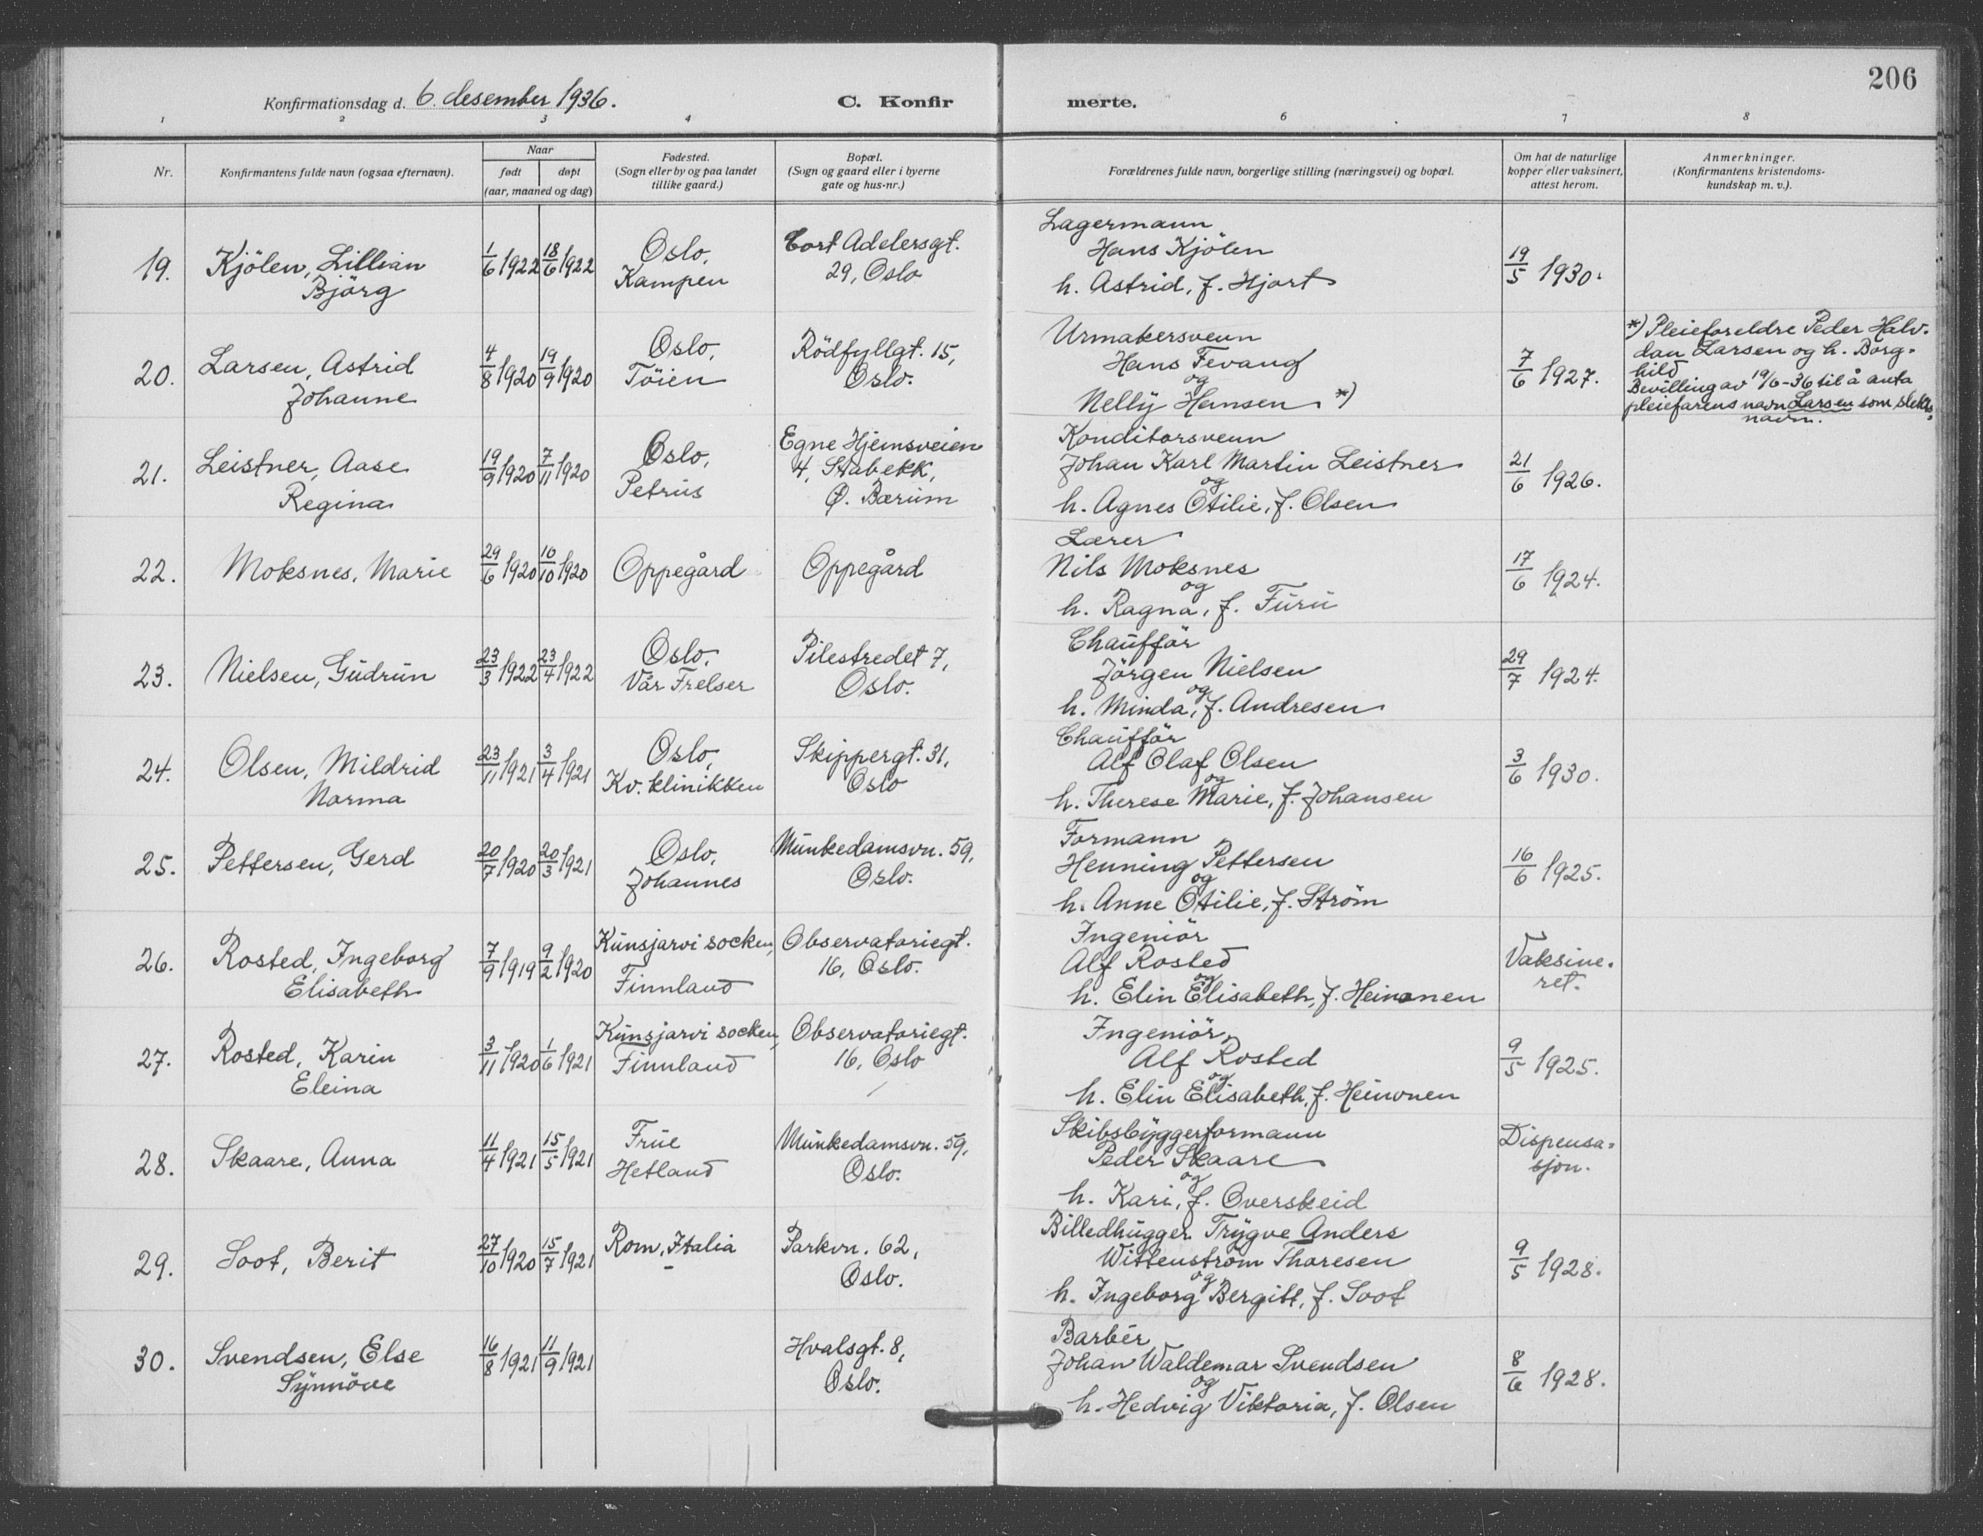 206
Konfirmationsdag d. 6. desember 1936. C. Konfir merte.
1 2 3 4 6 7 8
Nr.
Konfirmantens fulde navn (ogsaa efternavn).
Naar
født døpt
(aar, maaned og dag)
Fødested.
(Sogn eller by og paa landet
tillike gaard.)
Bopæl.
(Sogn og gaard eller i byerne
gate og hus-nr.)
Forældrenes fulde navn, borgerlige stilling (næringsvei) og bopæl.
Om hat de naturlige
kopper eller vaksinert,
attest herom.
Anmerkninger.
(Konfirmantens kristendoms-
kundskap m. v.).
19.
Kjölen, Lillian
Björg
1/6 1922 18/6 1922
Oslo,
Kampen
Cort Adelersgt.
29, Oslo
Lagermann
Hans Kjölen
h. Astrid, f. Hjort
19/5 1930.
20.
Larsen, Astrid
Johanne
4/8 1920 19/9 1920
Oslo,
Töien
Rödfyllgt. 15,
Oslo.
Urmakersvenn
Hans Fevang
og
Nelly Hansen *)
7/6 1927.
*) Pleieforeldre Peder Halv-
dan Larsen og h. Borg-
hild
Bevilling av 19/6-36 til å anta
pleiefarens navn Larsen som slekts-
navn.
21.
Leistner, Aase
Regina
19/9 1920 7/11 1920
Oslo,
Petrus
Egne Hjemsveien
4, Stabekk,
Ø. Bærum
Konditorsvenn
Johan Karl Martin Leistner
og
h. Agnes Otilie, f. Olsen
21/6 1926.
22.
Moksnes, Marie
29/6 1920 10/10 1920
Oppegård
Oppegård
Lærer
Nils Moksnes
og
h. Ragna, f. Furu
17/6 1924.
23.
Nielsen, Gudrun
23/3 1922 23/4 1922
Oslo,
Vår Frelser
Pilestredet 7,
Oslo.
Chauffør
Jörgen Nielsen
og
h. Minda, f. Andresen
29/7 1924.
24.
Olsen, Mildrid
Norma
23/11 1921 3/4 1921
Oslo,
Kv. klinikken
Skippergt. 31,
Oslo
Chauffør
Alf Olaf Olsen
og
h. Therese Marie, f. Johansen
3/6 1930.
25.
Pettersen, Gerd
20/7 1920 20/3 1921
Oslo,
Johannes
Munkedamsvn. 59,
Oslo.
Formann
Henning Pettersen
og
h. Anne Otilie, f. Strøm
16/6 1925.
26.
Rosted, Ingeborg
Elisabeth
7/9 1919 9/2 1920
Kunsjarvi socken,
Finnland
Observatoriegt.
16, Oslo.
Ingeniör
Alf Rosted
og
h. Elin Elisabeth, f. Heinonen
Vaksine-
ret.
27.
Rosted, Karin
Eleina
3/11 1920 1/6 1921
Kunsjarvi socken,
Finnland
Observatoriegt.
16, Oslo
Ingeniör,
Alf Rosted
og
h. Elin Elisabeth, f. Heinonen
9/5 1925.
28.
Skaare, Anna
11/4 1921 15/5 1921
Frue
Hetland
Munkedamsvn. 59,
Oslo.
Skibsbyggerformann
Peder Skaare
og
h. Kari, f. Overskeid
Dispensa-
sjon.
29.
Soot, Berit
27/10 1920 15/7 1921
Rom, Italia
Parkvn. 62,
Oslo.
Billedhugger Trygve Anders
Wittenstrøm Thoresen
og
h. Ingeborg Bergitt, f. Soot
9/5 1928.
30.
Svendsen, Else
Synnöve
16/8 1921 11/9 1921
Hvalsgt. 8,
Oslo.
Barbér
Johan Waldemar Svendsen
og
h. Hedvig Viktoria, f. Olsen
8/6 1928.